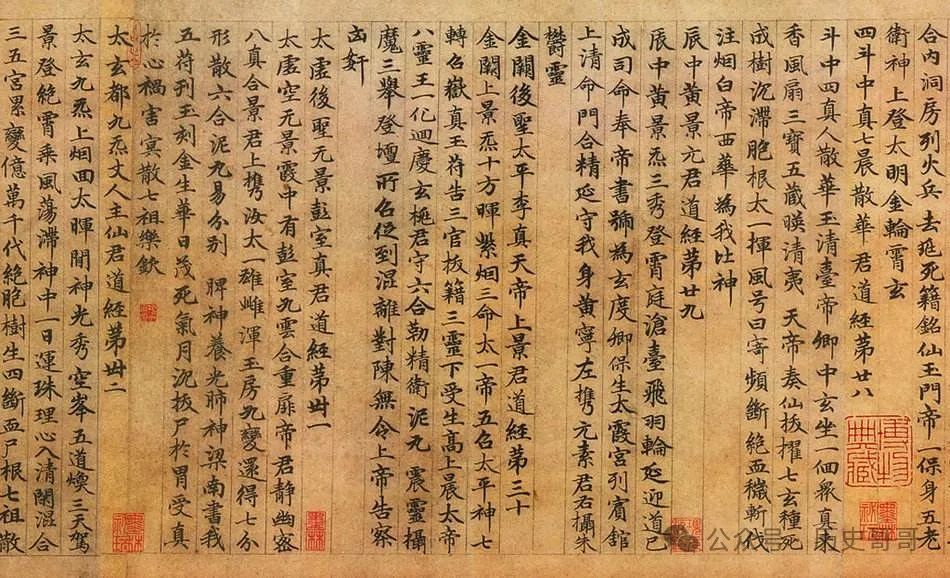 合内洞房列火兵去死籍銘仙玉門帝保身五老
衛神上登太明金輪霄玄
四斗中真七晨散華君道經苐廿八
斗中四真人散華玉清臺帝卿中玄坐一個衆真來
香風扇三寶五藏暎清夷天帝奏仙拔擢七玄種死
成樹沉滯胞根太一揮風号曰寄頻斷絶血穢斬伐
注烟白帝西華為我比神
辰中黄景元君道經苐廿九
辰中黄景炁三秀登霄庭滄臺飛羽輪延迎道已
成司命奉帝書號為玄度卿保生太霞宫列賓舘
上清命門合精延守我身黄寧左攜元素君右攝朱
鬱靈
金闕後聖太平李真天帝上景君道經苐三十
金闕上景炁十方暉紫烟三命太一帝五名太平神七
轉召嶽真玉符告三官拔籍三靈下受生髙上晨太帝
八靈王一化迴慶玄梔君守六合勒精衛泥丸震靈攝
魔三舉登壇所召促到混離對陳無令上帝告察
凶奸
太虚後聖元景彭室真君道經苐卅一
太虚空元景霞中有彭室九雲合重扉帝君静幽密
八真合景君上攜汝太一雄雌渾玉房九變還得七分
形散六合泥丸易分别脾神養光肺神梁南書我
五符刊玉刻金生華日茂死氣月沉拔尸於胃受真
於心禍害㝠散七祖樂欽
太玄都九炁丈人主仙君道經苐卅二
太玄九炁上烟回太暉閒神光秀空峯五道煥三天駕
景登絶霄乘風蕩滯神中一日運珠理心入清閑混合
三五宫累變億萬千代絶胞樹生四斷血尸根七祖散
博物
典藏
公众号·历史哥哥